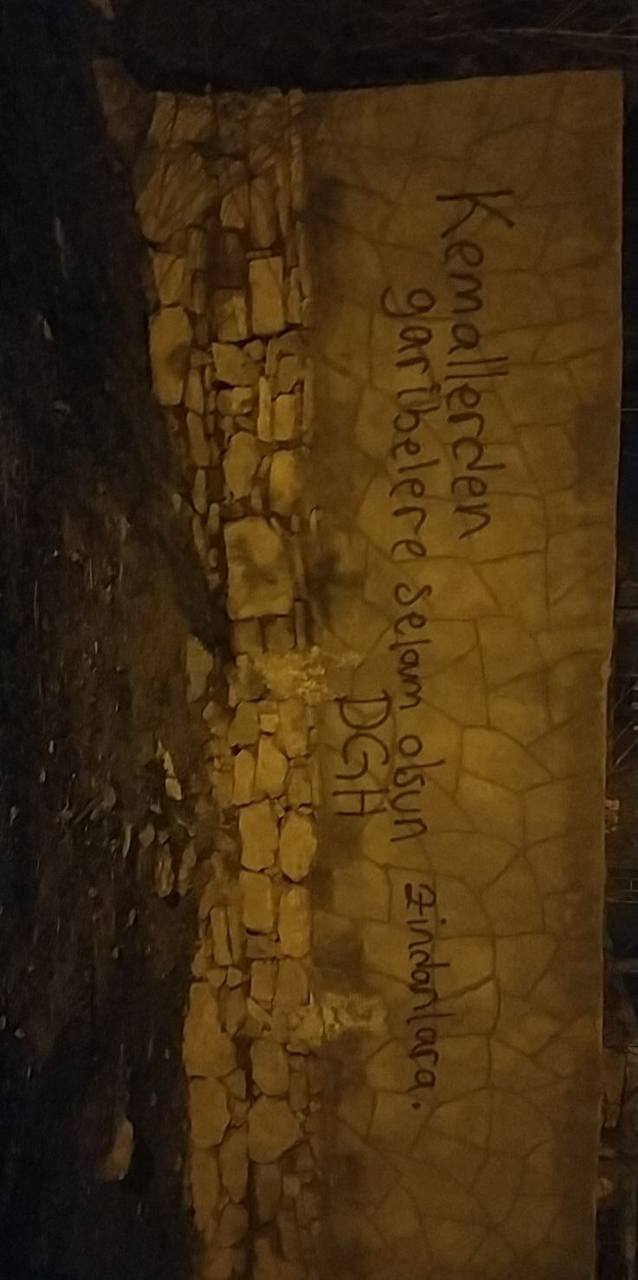 Kemallerden
garibelere selam olsun zindanlara.
DGH